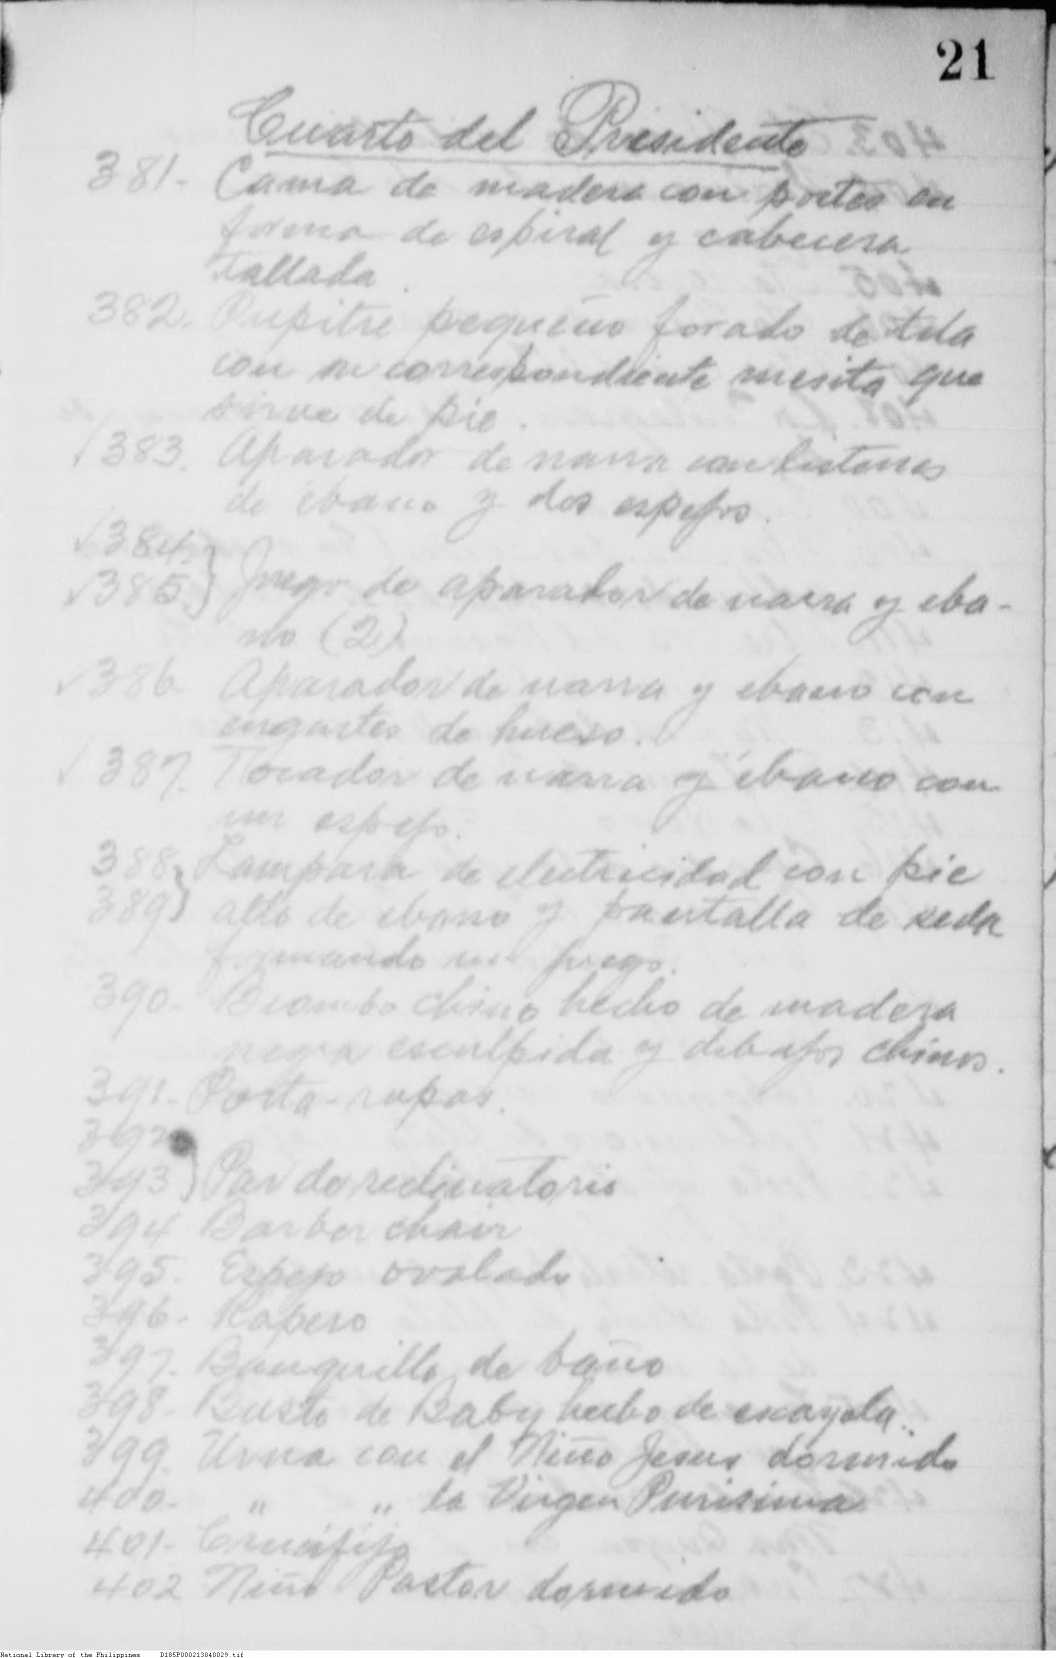 21
Cuarto del Presidente
381- Cama de madera con postes en
forma de espiral y cabecera
tallada.
382. Pupitre pequeño forado de tela
con su correspondiente mesita que
sirve de pie.
√ 383. Aparador de narra con listones
de ébano y dos espejos.
√ 384
√ 385 } Juego de aparador de narra y eba-
no (2)
√ 386 Aparador de narra y ebano con
engastes de hueso.
√ 387. Tocador de narra y ébano con
un espejo.
388 Lampara de electricidad con pie
389 } alto de ebano y pantalla de seda
formando un juego.
390- Biombo chino hecho de madera
negra esculpida y dibujos chinos.
391- Porta-ropas.
392
393 } Par de reclinatorio
394 Barber chair
395. Espejo ovalado
396- Ropero
397. Banquillo de baño
398- Busto de Baby hecho de escayola.
399. Urna con el Niño Jesus dormido
400- " " la Virgen Purisima
401- Crucifijo
402 Niño Pastor dormido
National Library of the Philippines D185P000213040029.tif